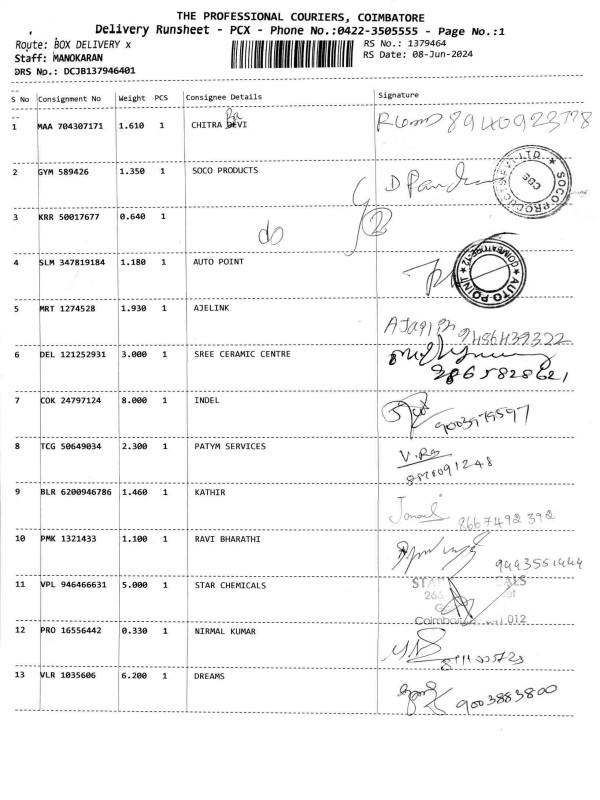 THE PROFESSIONAL COURIERS, COIMBATORE
Delivery Runsheet - PCX - Phone No.:0422-3505555 - Page No.:1
Route: BOX DELIVERY x
RS No.: 1379464
Staff: MANOKARAN
RS Date: 08-Jun-2024
DRS No.: DCJB137946401
S No Consignment No Weight PCS Consignee Details Signature
1 MAA 704307171 1.610 1 CHITRA DEVI 8940923778
2 GYM 589426 1.350 1 SOCO PRODUCTS
SOCO PRODUCTS PVT. LTD. ★ CBE
3 KRR 50017677 0.640 1 do
4 SLM 347819184 1.180 1 AUTO POINT
★ AUTO POINT ★ COIMBATORE-12
5 MRT 1274528 1.930 1 AJELINK 9486439322
6 DEL 121252931 3.000 1 SREE CERAMIC CENTRE 9865828621
7 COK 24797124 8.000 1 INDEL 9003979597
8 TCG 50649034 2.300 1 PATYM SERVICES
9 BLR 6200946786 1.460 1 KATHIR 8667492392
10 PMK 1321433 1.100 1 RAVI BHARATHI 9443551444
11 VPL 946466631 5.000 1 STAR CHEMICALS
12 PRO 16556442 0.330 1 NIRMAL KUMAR
13 VLR 1035606 6.200 1 DREAMS 9003883800